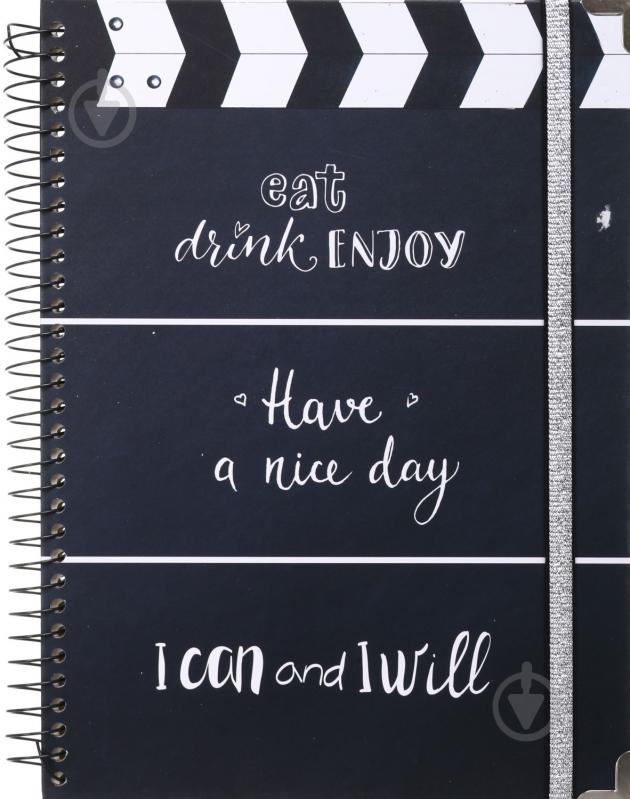 eat
drink ENJOY
Have
a nice day
I can and I will